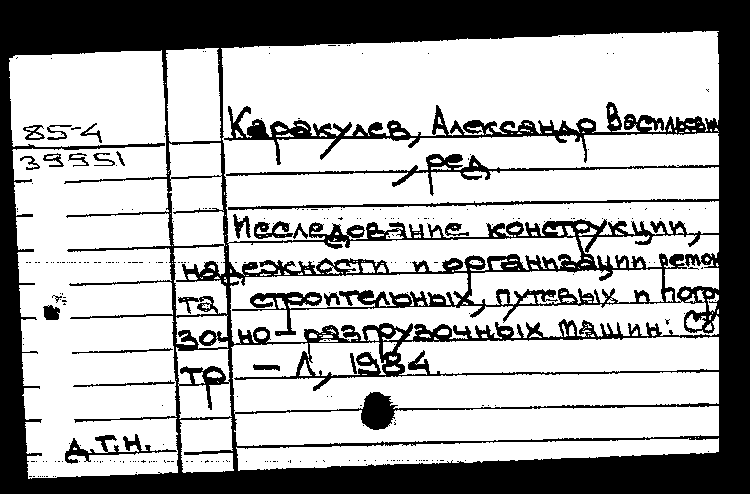 85-4
39951
Каракулев, Александр Васильевич
, ред.
Исследование конструкции,
надежности и организации ремон
та строительных, путевых и погру
зочно-разгрузочных машин: Сб.
тр — Л., 1984.
д.т.н.